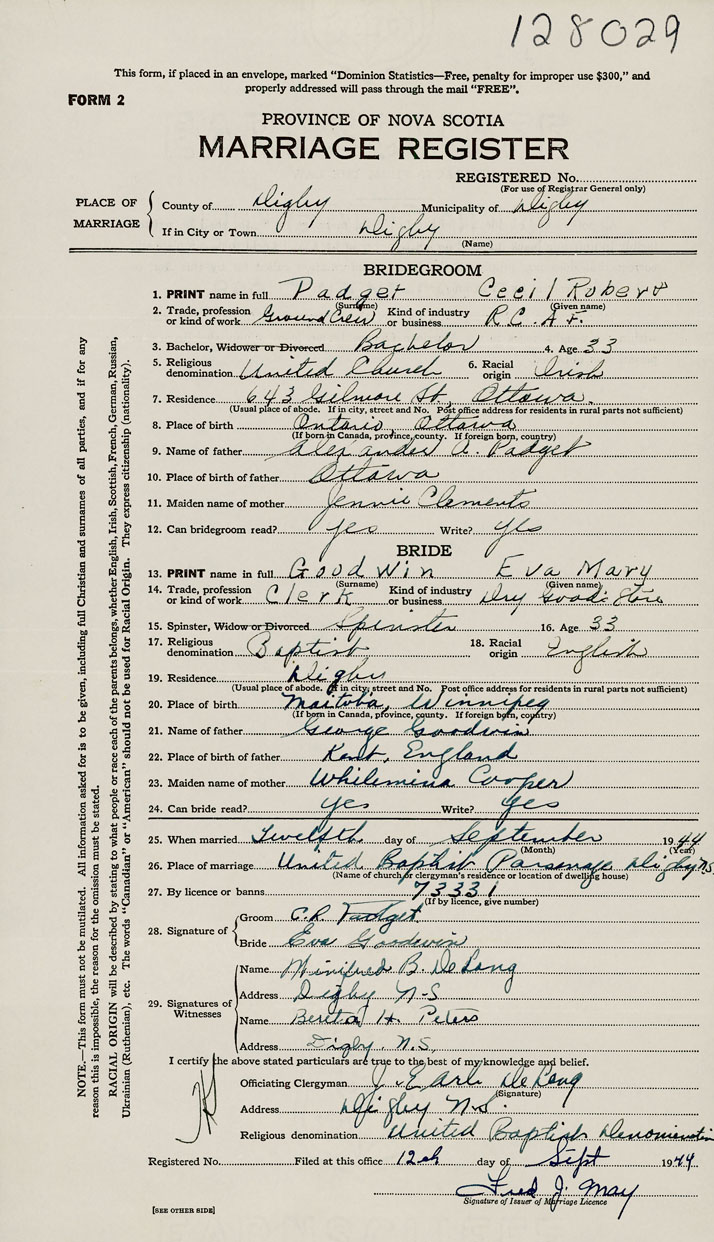 128029
This form, if placed in an envelope, marked "Dominion Statistics—Free, penalty for improper use $300," and
properly addressed will pass through the mail "FREE".
FORM 2
PROVINCE OF NOVA SCOTIA
MARRIAGE REGISTER
REGISTERED No.
(For use of Registrar General only)
PLACE OF MARRIAGE
County of Digby Municipality of Digby
If in City or Town Digby
(Name)
BRIDEGROOM
1. PRINT name in full Padget Cecil Robert
(Surname) (Given name)
2. Trade, profession or kind of work Ground Crew Kind of industry or business R.C.A.F.
3. Bachelor, Widower or Divorced Bachelor 4. Age 33
5. Religious denomination United Church 6. Racial origin Irish
7. Residence 643 Gilmore St, Ottawa.
(Usual place of abode. If in city, street and No. Post office address for residents in rural parts not sufficient)
8. Place of birth Ontario, Ottawa
(If born in Canada, province, county. If foreign born, country)
9. Name of father Alexander A. Padget
10. Place of birth of father Ottawa
11. Maiden name of mother Jennie Clements
12. Can bridegroom read? yes Write? yes
BRIDE
13. PRINT name in full Goodwin Eva Mary
(Surname) (Given name)
14. Trade, profession or kind of work Clerk Kind of industry or business Dry Goods Store
15. Spinster, Widow or Divorced Spinster 16. Age 33
17. Religious denomination Baptist 18. Racial origin English
19. Residence Digby
(Usual place of abode. If in city, street and No. Post office address for residents in rural parts not sufficient)
20. Place of birth Maitoba, Winnipeg
(If born in Canada, province, county. If foreign born, country)
21. Name of father George Goodwin
22. Place of birth of father Kent, England
23. Maiden name of mother Whilemina Cooper
24. Can bride read? yes Write? yes
25. When married Twelfth day of September 1944
(Month) (Year)
26. Place of marriage United Baptist Parsonage Digby N.S.
(Name of church or clergyman's residence or location of dwelling house)
27. By licence or banns 73331
(If by licence, give number)
28. Signature of
Groom C.R. Padget
Bride Eva Goodwin
29. Signatures of Witnesses
Name Minifred B. DeLong
Address Digby N-S
Name Bereta H. Peters
Address Digby N.S.
I certify the above stated particulars are true to the best of my knowledge and belief.
Officiating Clergyman J. Earle DeLong
(Signature)
Address Digby N.S.
Religious denomination United Baptist Denomination
Registered No. Filed at this office 12th day of Sept 1944
Fred J. May
Signature of Issuer of Marriage Licence
[SEE OTHER SIDE]
NOTE.—This form must not be mutilated. All information asked for is to be given, including full Christian and surnames of all parties, and if for any
reason this is impossible, the reason for the omission must be stated.
RACIAL ORIGIN will be described by stating to what people or race each of the parents belongs, whether English, Irish, Scottish, French, German, Russian,
Ukrainian (Ruthenian), etc. The words "Canadian" or "American" should not be used for Racial Origin. They express citizenship (nationality).